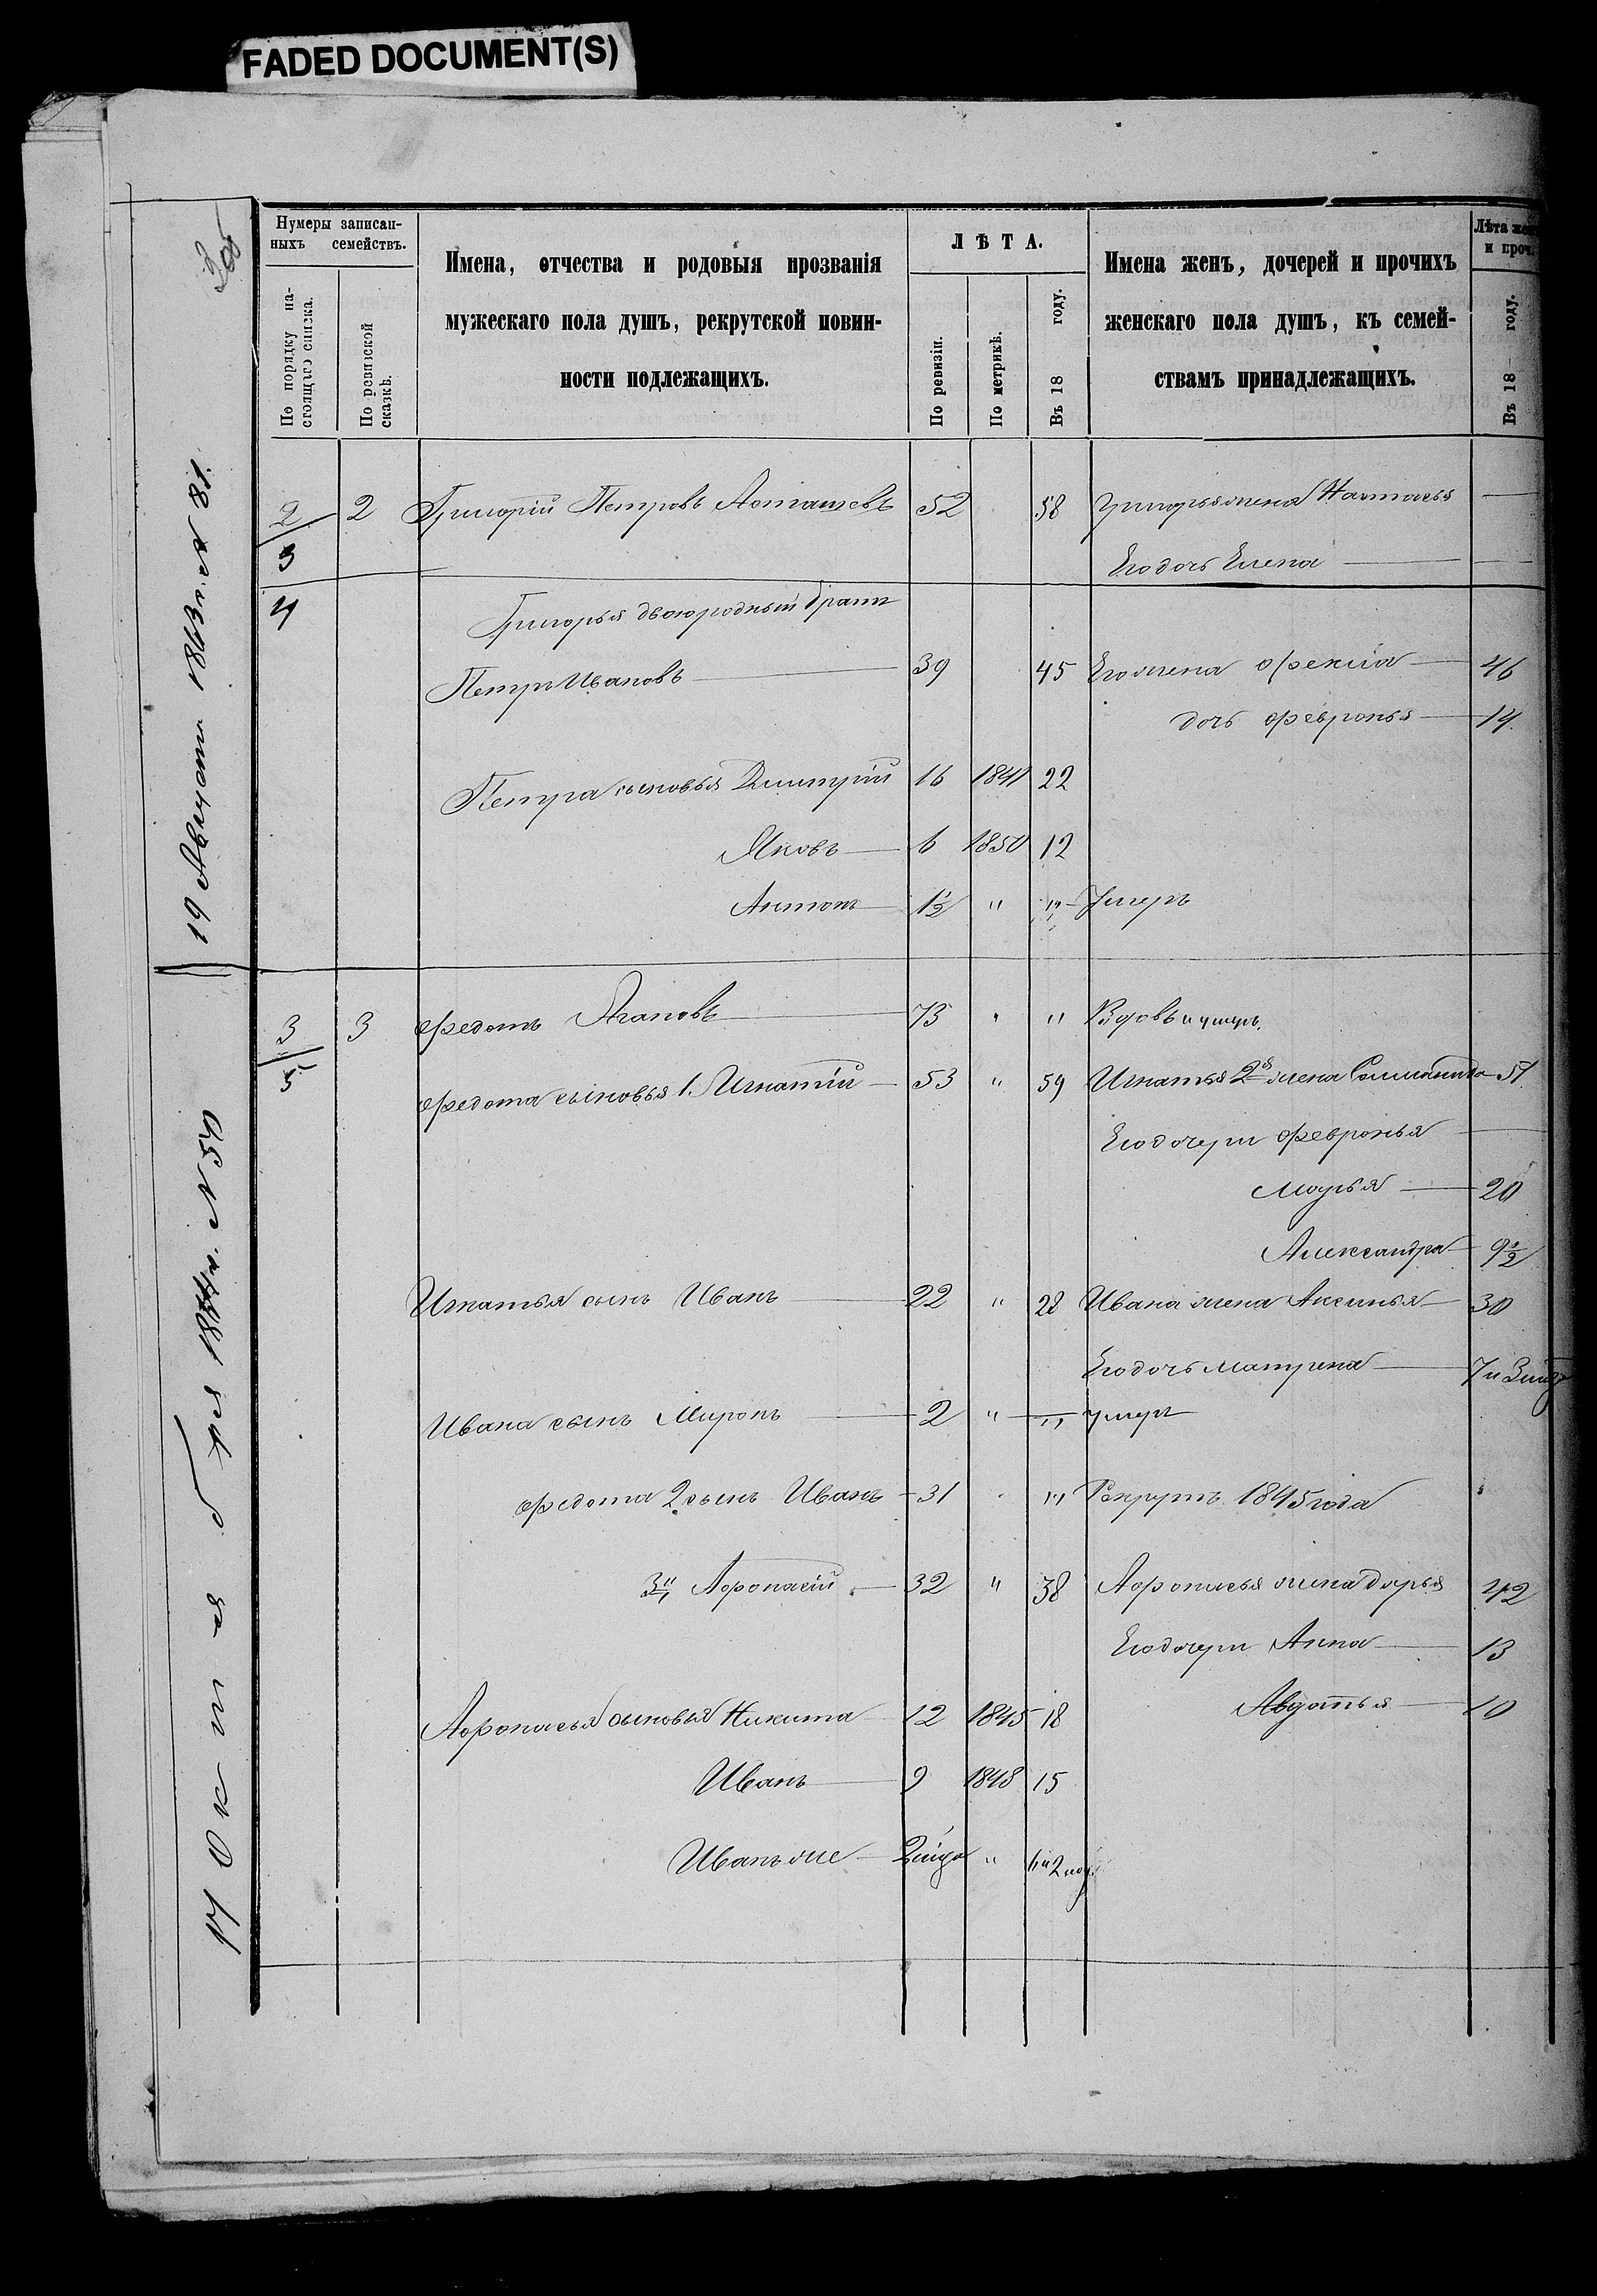 FADED DOCUMENT(S)
Нумеры записан-
ныхъ семействъ.
По порядку на-
стоящаго списка.
По ревизской
сказкѣ.
Имена, отчества и родовыя прозванія
мужескаго пола душъ, рекрутской повин-
ности подлежащихъ.
ЛѢТА.
По ревизіи.
По метрикѣ.
Въ 18 году.
Имена женъ, дочерей и прочихъ
женскаго пола душъ, къ семей-
ствамъ принадлежащихъ.
Лѣта жен
и проч.
Въ 18 году.
19 Августа 1863 г. № 81.
2 2 Григорій Петровъ Асташевъ 52 58 Григорья жена Настасья —
3 Его дочь Елена —
4 Григорья двоюродный братъ
Петръ Ивановъ — 39 45 Его жена Фекла — 46
дочь Февронья — 14
Петра сыновья Дмитрій 16 1841 22
Яковъ — 6 1850 12
Антонъ — 1½ " " Умеръ
3 3 Федотъ Агаповъ — 73 " " Вдовъ и умеръ.
5 Федота сыновья 1. Игнатій — 53 " 59 Игнатья 2я жена Соломанида 51
Его дочери Февронья —
Марья — 20
Александра — 9½
Игнатья сынъ Иванъ — 22 " 28 Ивана жена Аксинья — 30
Его дочь Матрена —
Ивана сынъ Миронъ — 2 " " умеръ
Федота 2 сынъ Иванъ — 31 " Рекрутъ 1845 года
3й Афонасій — 32 " 38 Афонасья жена Дарья 42
Его дочери Анна — 13
Афонасья сыновья Никита 12 1845 18 Авдотья — 10
Иванъ — 9 1848 15
Иванъ же —
17 Октября № 50